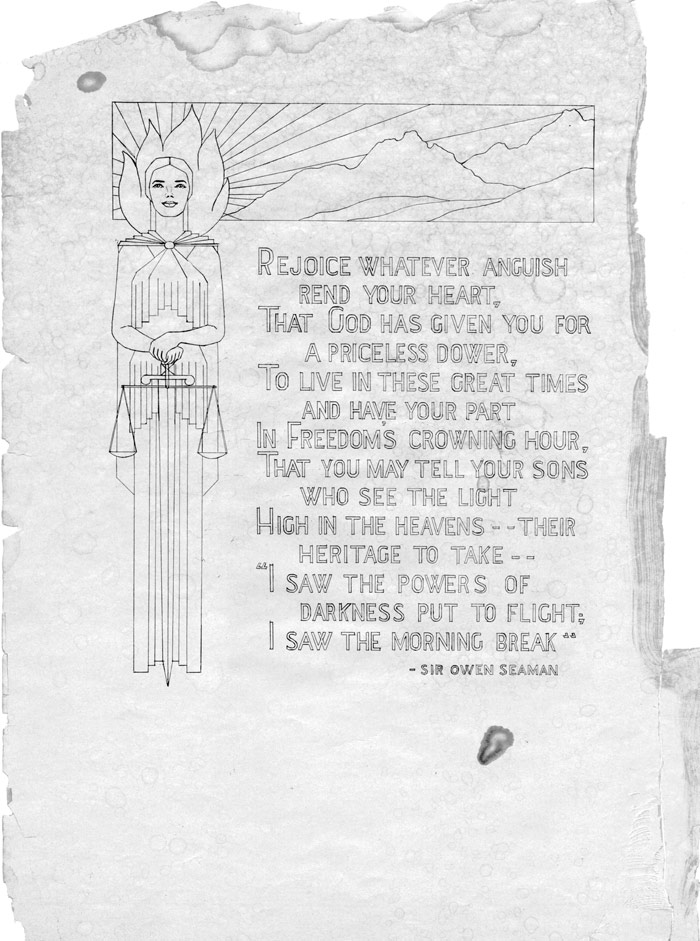 REJOICE WHATEVER ANGUISH
REND YOUR HEART,
THAT GOD HAS GIVEN YOU FOR
A PRICELESS DOWER,
TO LIVE IN THESE GREAT TIMES
AND HAVE YOUR PART
IN FREEDOM'S CROWNING HOUR,
THAT YOU MAY TELL YOUR SONS
WHO SEE THE LIGHT
HIGH IN THE HEAVENS -- THEIR
HERITAGE TO TAKE --
"I SAW THE POWERS OF
DARKNESS PUT TO FLIGHT;
I SAW THE MORNING BREAK"
- SIR OWEN SEAMAN